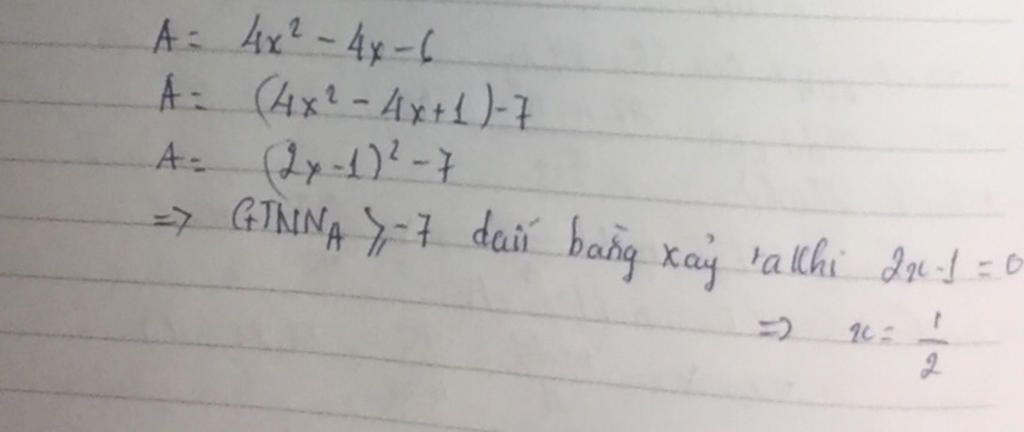 A = 4x² - 4x - 6
A = (4x² - 4x + 1) - 7
A = (2x - 1)² - 7
=> GTNN_A ⩾ -7 dấu bằng xảy ra khi 2x - 1 = 0
=> x = 1/2